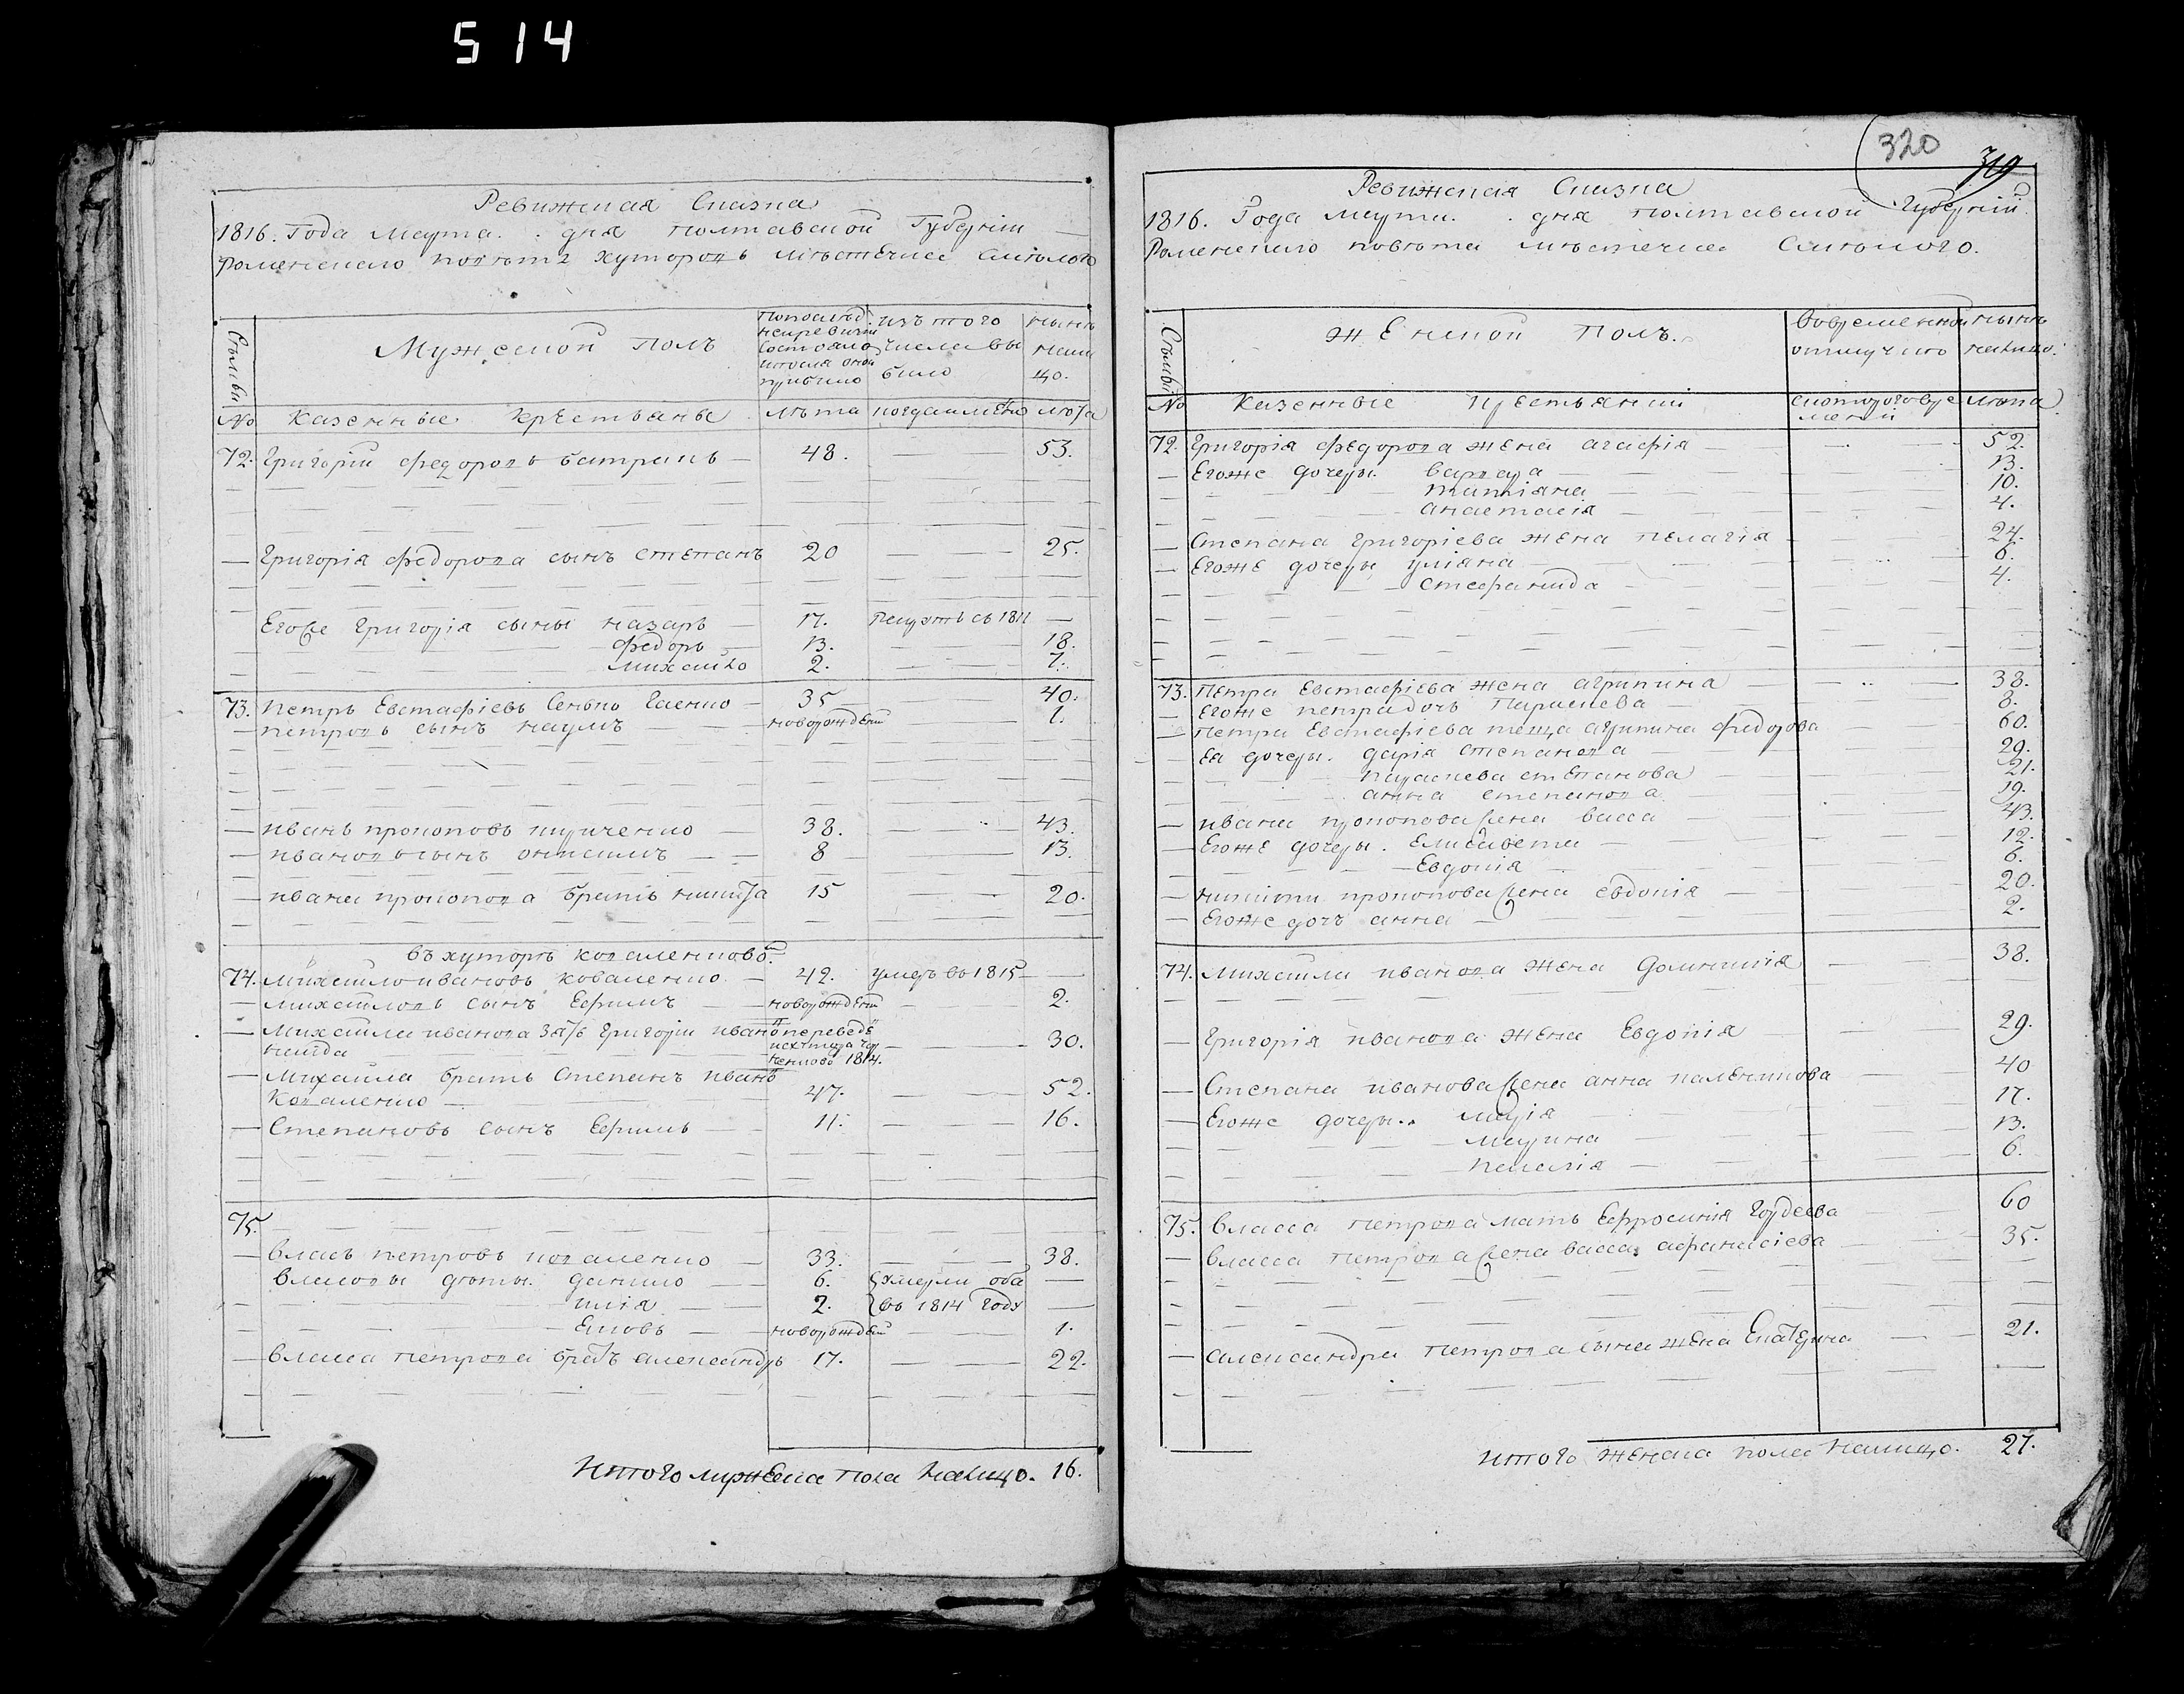 514
Ревижская Сказка
1816. Года Марта . . дня Полтавской Губерніи
Роменского повѣта хуторовъ мѣстечка Смѣлого
Семьи
Мужеской Полъ
По последней ревизіи состояло и после оной прибыло
Изъ того числа выбыло
Нынѣ налицо.
№ Казенные крестьяне лѣта когда именно лѣта
72. Григорій Федоровъ батракъ 48. 53.
Григорія Федорова сынъ Степанъ 20 25.
Егоже Григорія сыны Назаръ 17. Рекрутъ съ 1811
Федоръ 13. 18.
Михайло 2. 7.
73. Петръ Евстафіевъ Сенько Гаенко 35 40.
Петровъ сынъ Наумъ новорожденй 1.
Иванъ Прокоповъ Кириченко 38. 43.
Ивановъ сынъ Онисимъ 8 13.
Ивана Прокопова братъ Никита 15 20.
въ хуторѣ Коваленковой
74. Михайло Ивановъ Коваленко 42. умеръ въ 1815
Михайловъ сынъ Ефимъ новорожденй 2.
Михайла Иванова зять Григорій Иванов переведе
30.
1814.
Михайла братъ Степанъ Иванъ
Коваленко 47. 52.
Степановъ сынъ Ефимъ 11. 16.
75.
Власъ Петровъ Коваленко 33. 38.
Власовы дѣти. Данило 6. умерли оба
Илія 2. въ 1814 году
Яковъ новорожденй 1.
Власа Петрова братъ Александръ 17. 22.
Итого мужеска пола налицо. 16.
320
319
Ревижская Сказка
1816. Года Марта . . дня Полтавской Губерній.
Роменского повѣта мѣстечка Смѣлого.
Семьи
Женской Полъ.
Во временной отлучкѣ
Нынѣ налицо.
№ Казенные крестьянки съ которого времени лѣта
72. Григорія Федорова жена Агафія 52.
Егоже дочеры. Варвара 13.
Татіяна 10.
Анастасія 4.
Степана Григоріева жена Пелагія 24.
Егоже дочеры Уліяна 6.
Стефанида 4.
73. Петра Евстафіева жена Агрипина 38.
Егоже Петра дочь Параскева 8.
Петра Евстафіева теща Агрипина Федорова 60.
Ея дочеры. Дарія Степанова 29.
Параскева Степанова 21.
Анна Степанова 19.
Ивана Прокопова жена Васса 43.
Егоже дочеры. Елисавета 12.
Евдокія 6.
Никиты Прокопова жена Евдокія 20.
Егоже дочъ Анна 2.
74. Михайла Иванова жена Домникія 38.
Григорія Иванова жена Евдокія 29.
Степана Иванова жена Анна 40
Егоже дочеры.. Марія 17.
Марина 13.
Пелагія 6.
75. Власа Петрова мать Ефросинія Гордеева 60
Власса Петрова жена Васса Афанасіева 35.
Александра Петрова сына жена Екатерина 21.
Итого женска пола налицо. 27.